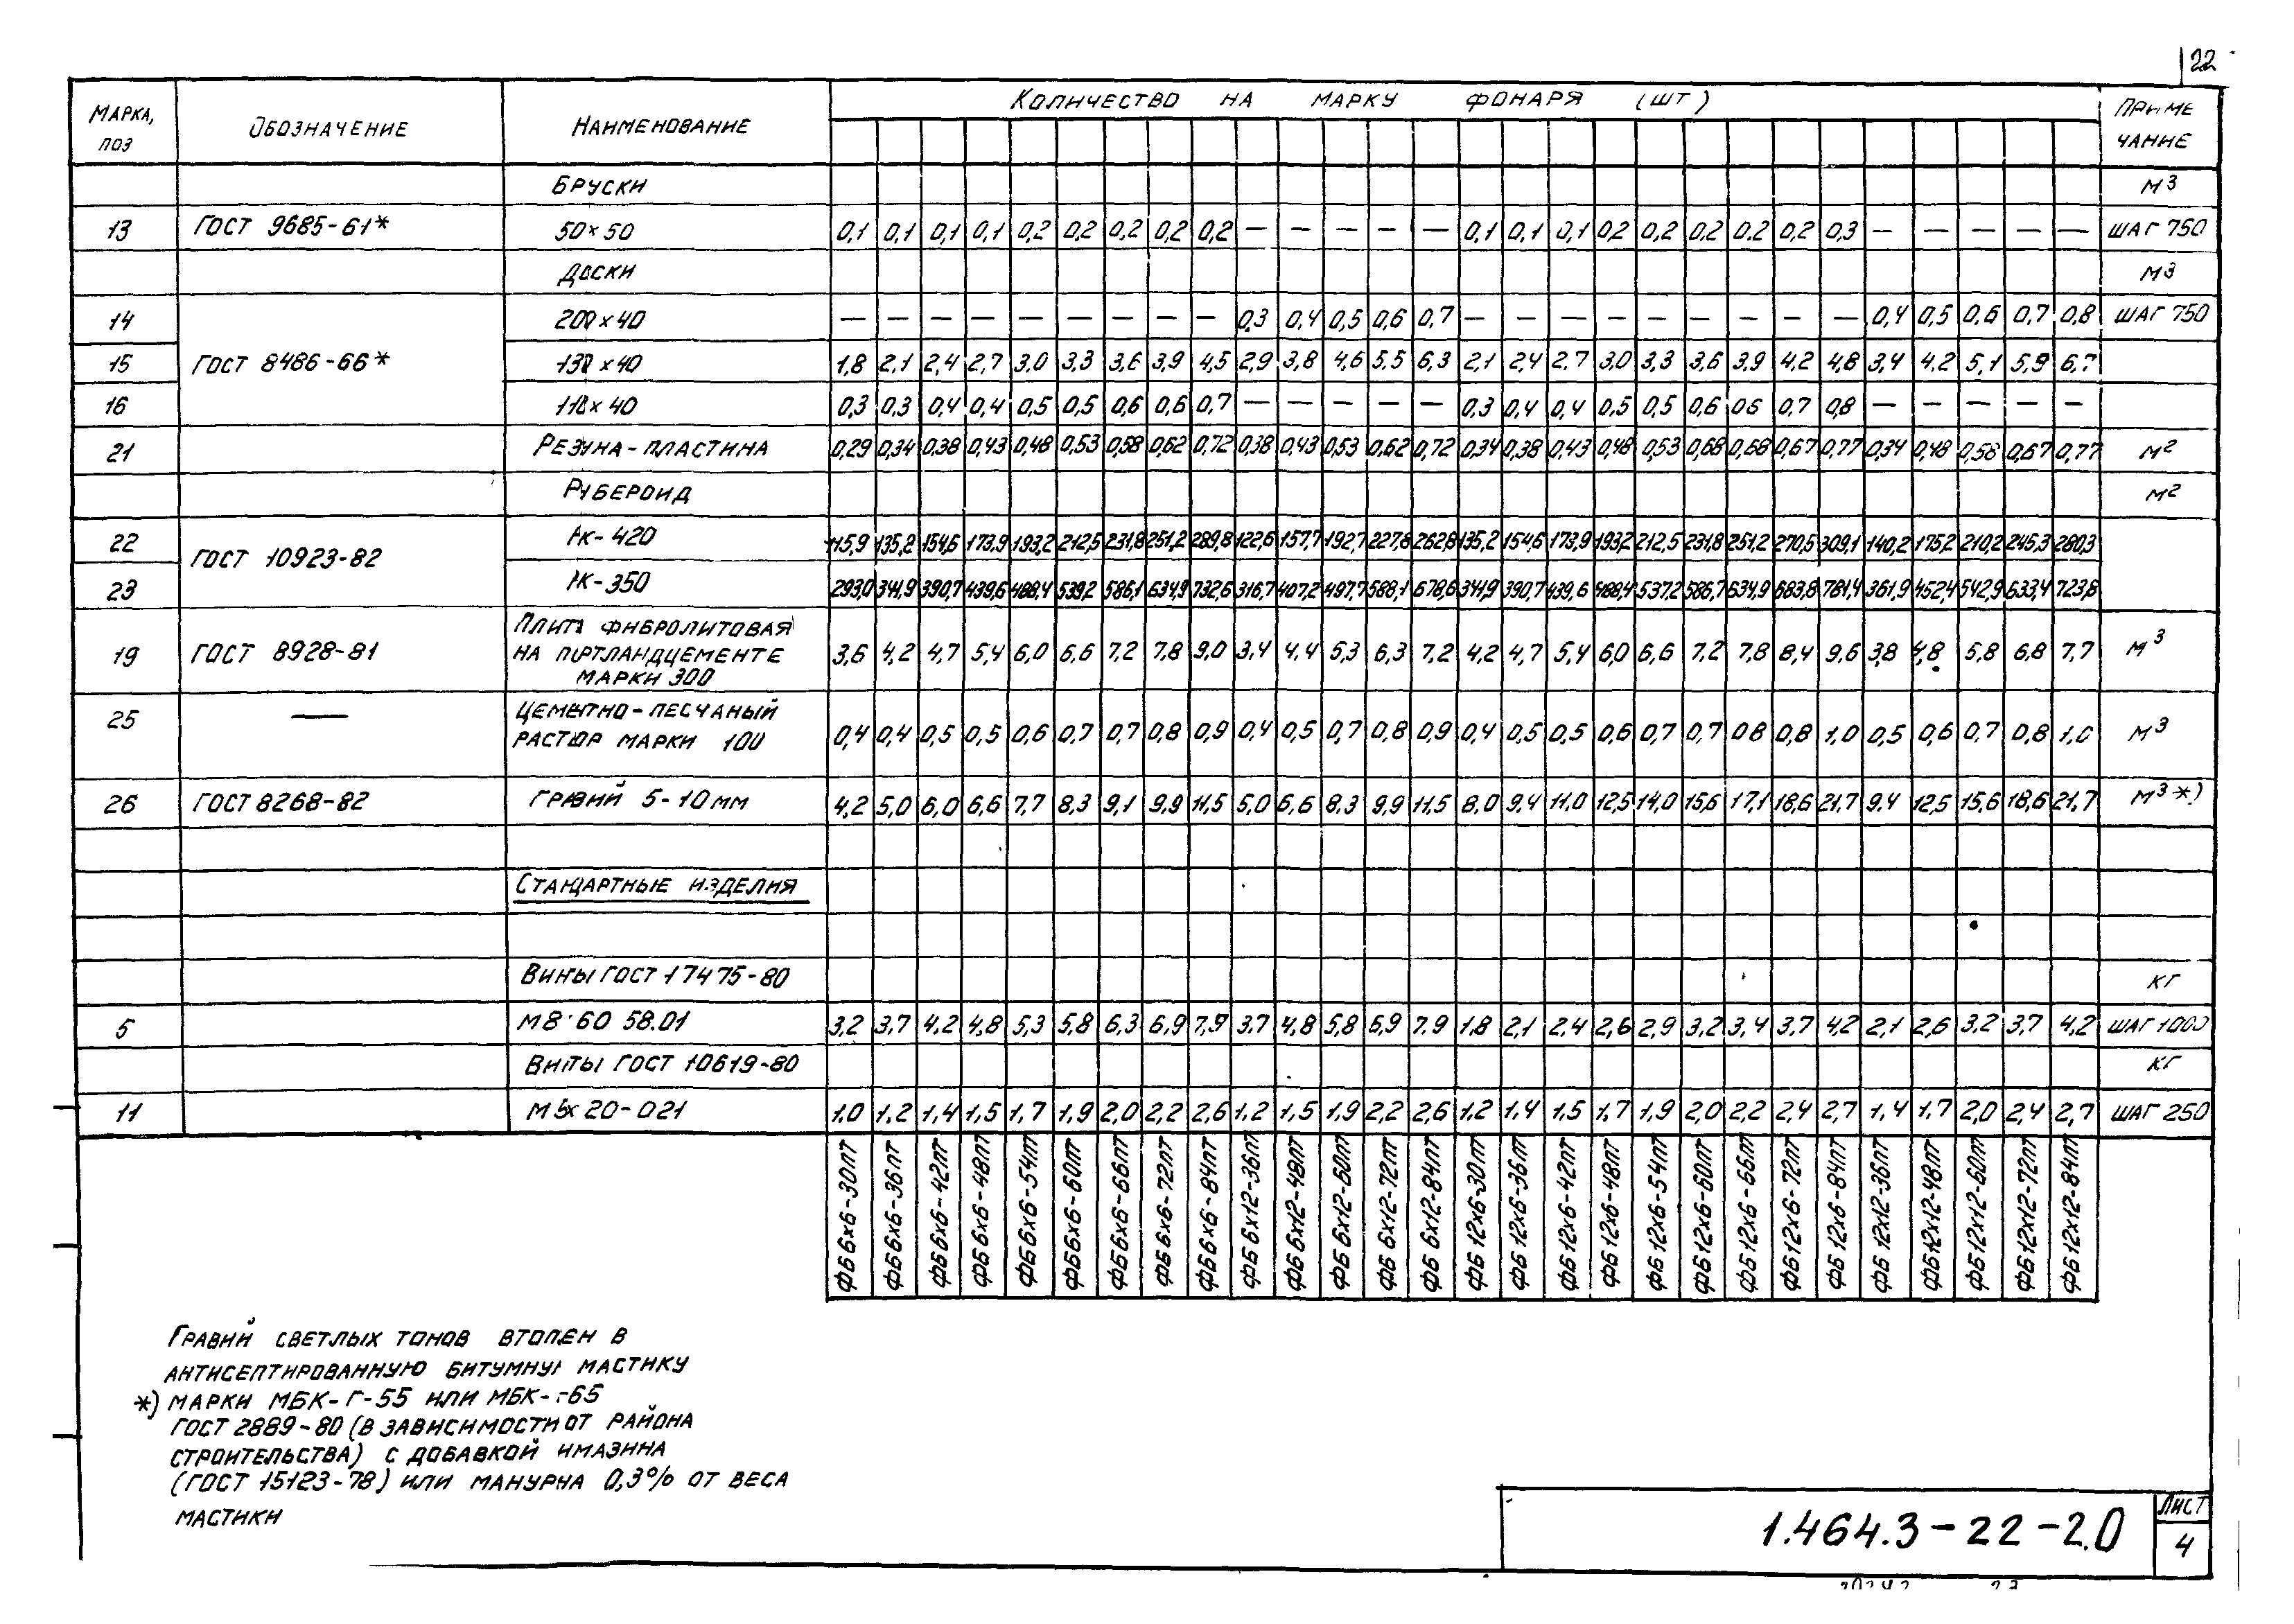 22
МАРКА, ПОЗ ОБОЗНАЧЕНИЕ НАИМЕНОВАНИЕ КОЛИЧЕСТВО НА МАРКУ ФОНАРЯ (ШТ) ПРИМЕЧАНИЕ
БРУСКИ М3
13 ГОСТ 9685-61* 50×50 0,1 0,1 0,1 0,1 0,2 0,2 0,2 0,2 0,2 — — — — — 0,1 0,1 0,1 0,2 0,2 0,2 0,2 0,2 0,3 — — — — — ШАГ 750
ДОСКИ М3
14 200×40 — — — — — — — — — 0,3 0,4 0,5 0,6 0,7 — — — — — — — — — 0,4 0,5 0,6 0,7 0,8 ШАГ 750
15 ГОСТ 8486-66* 130×40 1,8 2,1 2,4 2,7 3,0 3,3 3,6 3,9 4,5 2,9 3,8 4,6 5,5 6,3 2,1 2,4 2,7 3,0 3,3 3,6 3,9 4,2 4,8 3,4 4,2 5,1 5,9 6,7
16 110×40 0,3 0,3 0,4 0,4 0,5 0,5 0,6 0,6 0,7 — — — — — 0,3 0,4 0,4 0,5 0,5 0,6 0,6 0,7 0,8 — — — — —
21 РЕЗИНА-ПЛАСТИНА 0,29 0,34 0,38 0,43 0,48 0,53 0,58 0,62 0,72 0,38 0,43 0,53 0,62 0,72 0,34 0,38 0,43 0,48 0,53 0,68 0,68 0,67 0,77 0,34 0,48 0,58 0,67 0,77 М2
РУБЕРОИД М2
22 РК-420 115,9 135,2 154,6 173,9 193,2 212,5 231,8 251,2 289,8 122,6 157,7 192,7 227,8 262,8 135,2 154,6 173,9 193,2 212,5 231,8 251,2 270,5 309,1 140,2 175,2 210,2 245,3 280,3
ГОСТ 10923-82
23 РК-350 293,0 341,9 390,7 439,6 488,4 539,2 586,1 634,9 732,6 316,7 407,2 497,7 588,1 678,6 341,9 390,7 439,6 488,4 537,2 586,7 634,9 683,8 781,4 361,9 452,4 542,9 633,4 723,8
19 ГОСТ 8928-81 ПЛИТА ФИБРОЛИТОВАЯ
НА ПОРТЛАНДЦЕМЕНТЕ 3,6 4,2 4,7 5,4 6,0 6,6 7,2 7,8 9,0 3,4 4,4 5,3 6,3 7,2 4,2 4,7 5,4 6,0 6,6 7,2 7,8 8,4 9,6 3,8 4,8 5,8 6,8 7,7 М3
МАРКИ 300
25 — ЦЕМЕНТНО-ПЕСЧАНЫЙ
РАСТВОР МАРКИ 100 0,4 0,4 0,5 0,5 0,6 0,7 0,7 0,8 0,9 0,4 0,5 0,7 0,8 0,9 0,4 0,5 0,5 0,6 0,7 0,7 0,8 0,8 1,0 0,5 0,6 0,7 0,8 1,0 М3
26 ГОСТ 8268-82 ГРАВИЙ 5-10мм 4,2 5,0 6,0 6,6 7,7 8,3 9,1 9,9 11,5 5,0 6,6 8,3 9,9 11,5 8,0 9,4 11,0 12,5 14,0 15,6 17,1 18,6 21,7 9,4 12,5 15,6 18,6 21,7 М3*)
СТАНДАРТНЫЕ ИЗДЕЛИЯ
ВИНТЫ ГОСТ 17475-80 КГ
5 М8×60 58.01 3,2 3,7 4,2 4,8 5,3 5,8 6,3 6,9 7,9 3,7 4,8 5,8 6,9 7,9 1,8 2,1 2,4 2,6 2,9 3,2 3,4 3,7 4,2 2,1 2,6 3,2 3,7 4,2 ШАГ 1000
ВИНТЫ ГОСТ 10619-80 КГ
11 М5×20-021 1,0 1,2 1,4 1,5 1,7 1,9 2,0 2,2 2,6 1,2 1,5 1,9 2,2 2,6 1,2 1,4 1,5 1,7 1,9 2,0 2,2 2,4 2,7 1,4 1,7 2,0 2,4 2,7 ШАГ 250
ФБ6×6-30ПТ
ФБ6×6-36ПТ
ФБ6×6-42ПТ
ФБ6×6-48ПТ
ФБ6×6-54ПТ
ФБ6×6-60ПТ
ФБ6×6-66ПТ
ФБ6×6-72ПТ
ФБ6×6-84ПТ
ФБ6×12-36ПТ
ФБ6×12-48ПТ
ФБ6×12-60ПТ
ФБ6×12-72ПТ
ФБ6×12-84ПТ
ФБ12×6-30ПТ
ФБ12×6-36ПТ
ФБ12×6-42ПТ
ФБ12×6-48ПТ
ФБ12×6-54ПТ
ФБ12×6-60ПТ
ФБ12×6-66ПТ
ФБ12×6-72ПТ
ФБ12×6-84ПТ
ФБ12×12-36ПТ
ФБ12×12-48ПТ
ФБ12×12-60ПТ
ФБ12×12-72ПТ
ФБ12×12-84ПТ
ГРАВИЙ СВЕТЛЫХ ТОНОВ ВТОПЛЕН В
АНТИСЕПТИРОВАННУЮ БИТУМНУЮ МАСТИКУ
*) МАРКИ МБК-Г-55 ИЛИ МБК-Г-65
ГОСТ 2889-80 (В ЗАВИСИМОСТИ ОТ РАЙОНА
СТРОИТЕЛЬСТВА) С ДОБАВКОЙ ИМАЗИНА
(ГОСТ 15123-78) ИЛИ МАНУРНА 0,3% ОТ ВЕСА
МАСТИКИ
1.464.3-22-2.0
ЛИСТ
4